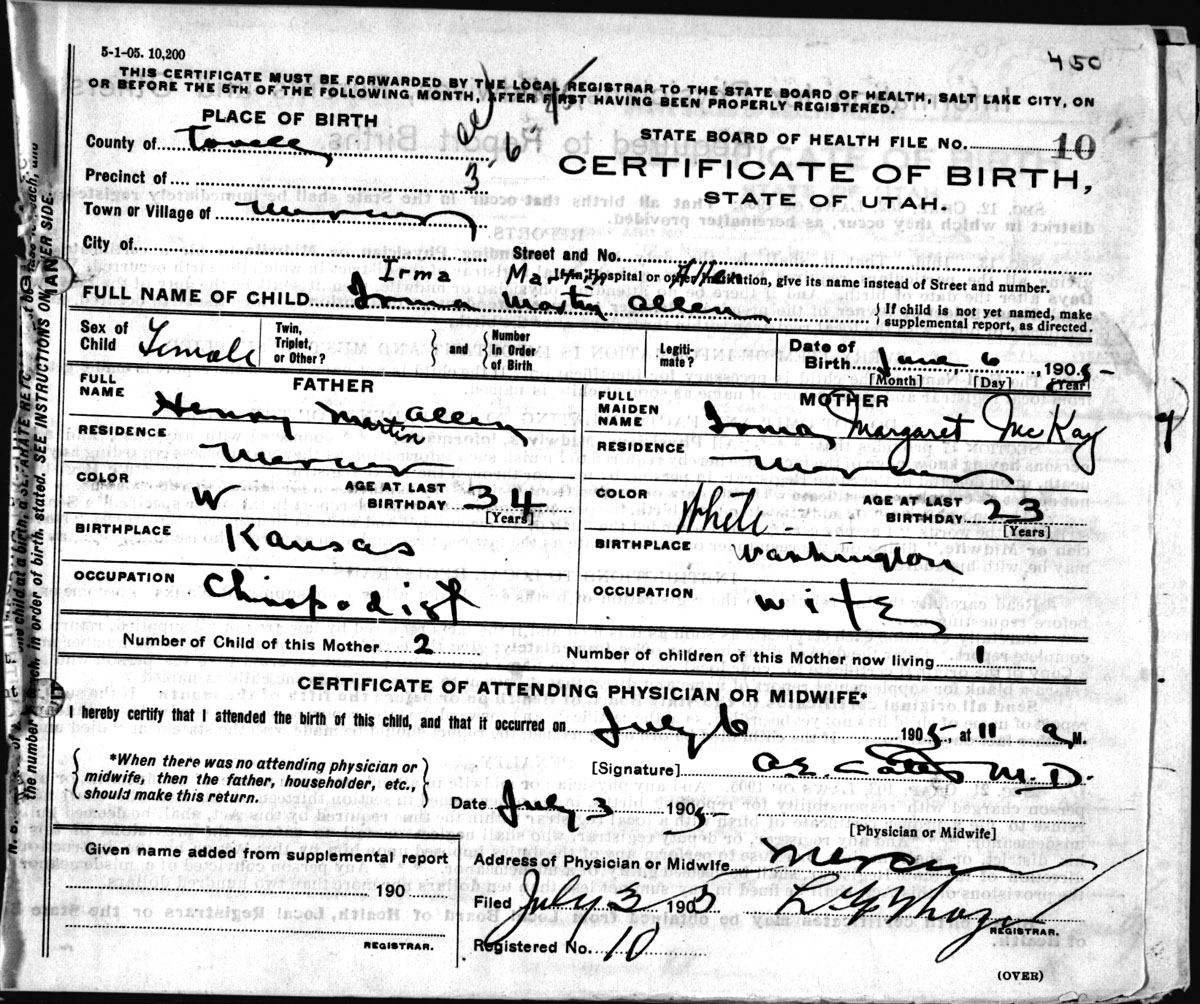 5-1-05. 10,200
450
THIS CERTIFICATE MUST BE FORWARDED BY THE LOCAL REGISTRAR TO THE STATE BOARD OF HEALTH, SALT LAKE CITY, ON
OR BEFORE THE 5TH OF THE FOLLOWING MONTH, AFTER FIRST HAVING BEEN PROPERLY REGISTERED.
PLACE OF BIRTH
County of Tooele
Precinct of 3
Town or Village of Mercur
STATE BOARD OF HEALTH FILE NO. 10
CERTIFICATE OF BIRTH,
STATE OF UTAH.
City of
Street and No.
If in Hospital or other Institution, give its name instead of Street and number.
Irma Martin Allen
FULL NAME OF CHILD Irma Martin Allen
If child is not yet named, make
supplemental report, as directed.
Sex of Child Female
Twin, Triplet, or Other?
and
Number In Order of Birth
Legiti-mate?
Date of Birth June 6, 1905
[Month] [Day] [Year]
FATHER
FULL NAME Henry Martin Allen
RESIDENCE Mercur
COLOR W
AGE AT LAST BIRTHDAY 34
[Years]
BIRTHPLACE Kansas
OCCUPATION Chiropodist
MOTHER
FULL MAIDEN NAME Irma Margaret McKay
RESIDENCE Mercur
COLOR White
AGE AT LAST BIRTHDAY 23
[Years]
BIRTHPLACE Washington
OCCUPATION Wife
Number of Child of this Mother 2
Number of children of this Mother now living 1
CERTIFICATE OF ATTENDING PHYSICIAN OR MIDWIFE*
I hereby certify that I attended the birth of this child, and that it occurred on July 6 1905, at 11 a M.
*When there was no attending physician or
midwife, then the father, householder, etc.,
should make this return.
[Signature] M.D.
Date July 3 1905
[Physician or Midwife]
Given name added from supplemental report
190
REGISTRAR.
Address of Physician or Midwife Mercur
Filed July 3 1905
REGISTRAR.
Registered No. 10
(OVER)